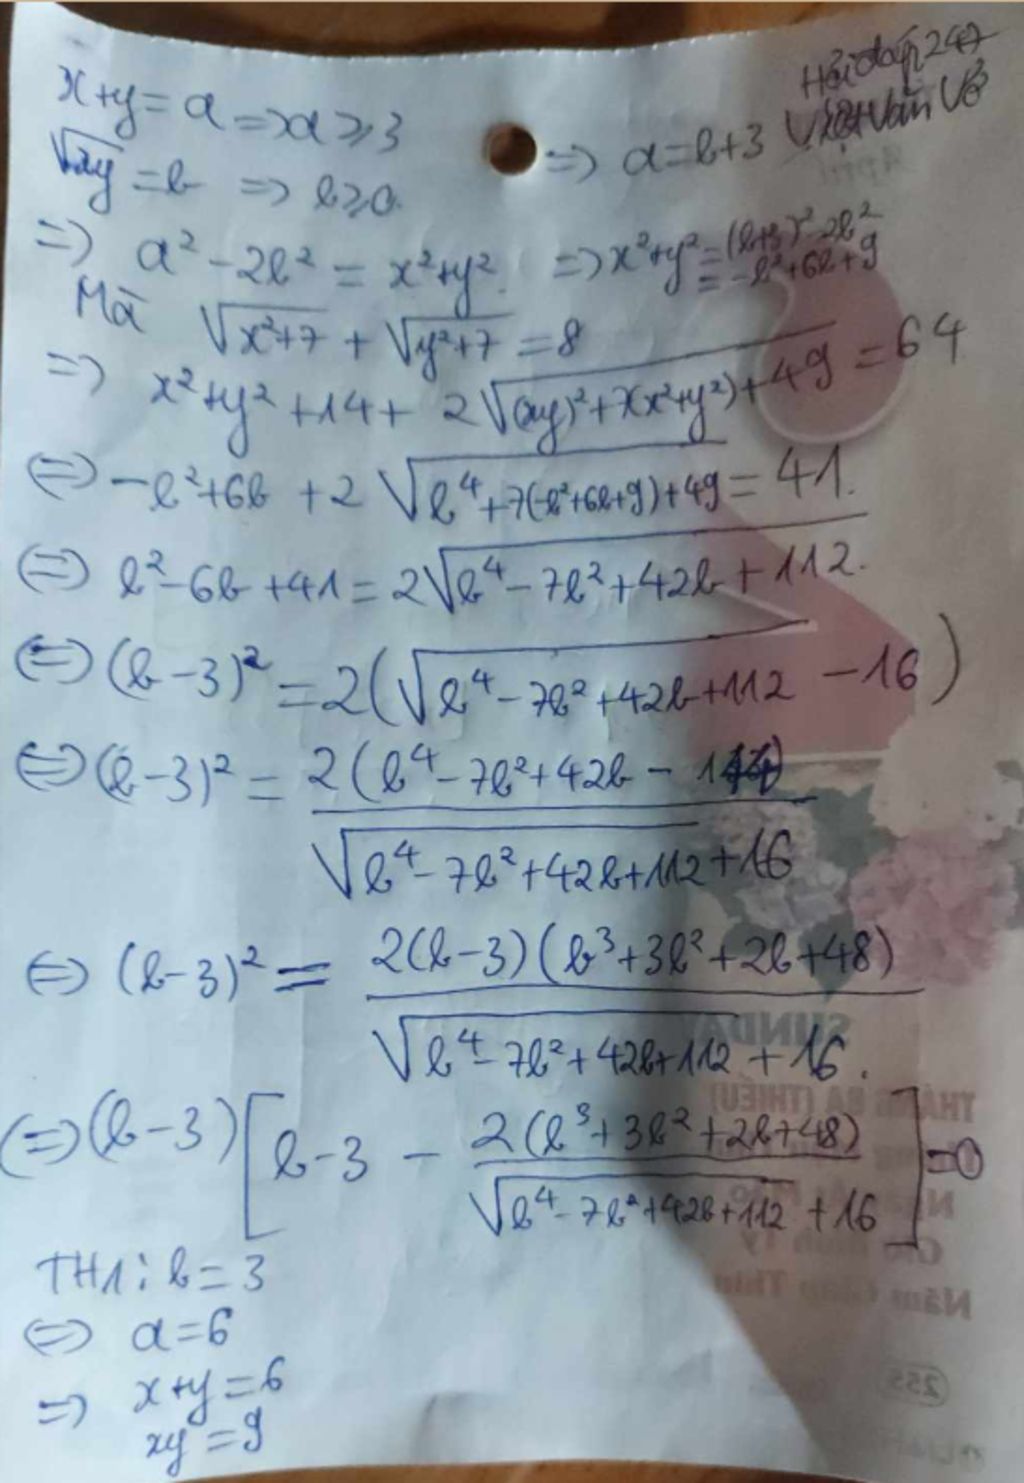 x+y=a =>a≥3
Hỏi đáp 247
√xy = b => b≥0.
=> a=b+3
=> a²-2b² = x²+y². => x²+y²=(b+3)²-2b²
= -b²+6b+9
Mà √x²+7 + √y²+7 =8
=> x²+y²+14+ 2√(xy)²+7(x²+y²)+49 = 64
<=> -b²+6b +2 √b⁴+7(-b²+6b+9)+49 = 41.
<=> b²-6b+41=2√b⁴-7b²+42b+112.
<=> (b-3)² =2(√b⁴-7b²+42b+112 -16)
<=> (b-3)² = 2(b⁴-7b²+42b-144)
√b⁴-7b²+42b+112+16
<=> (b-3)² = 2(b-3)(b³+3b²+2b+48)
√b⁴-7b²+42b+112 +16.
<=> (b-3)[b-3 - 2(b³+3b²+2b+48)]=0
√b⁴-7b²+42b+112 +16
TH1: b=3
<=> a=6
=> x+y=6
xy=9
SUNDAY
THÁNG BA (THIẾU)
255